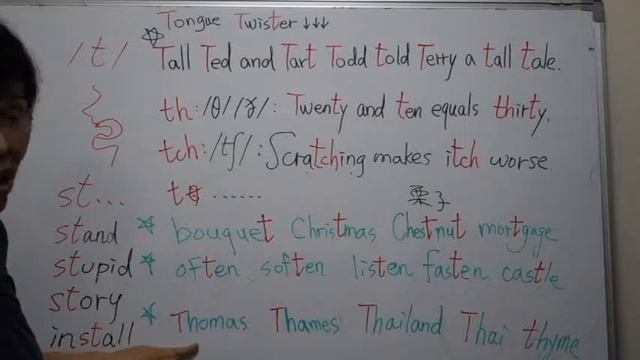 Tongue Twister↓↓↓
/t/ ☆ Tall Ted and Tart Todd told Terry a tall tale.
th:/θ/ /ð/: Twenty and ten equals thirty.
tch:/tʃ/: Scratching makes itch worse.
st... t母...... 栗子
stand ☆ bouquet Christmas Chestnut mortgage
stupid ☆ often soften listen fasten castle
story
install ☆ Thomas Thames Thailand Thai thyme